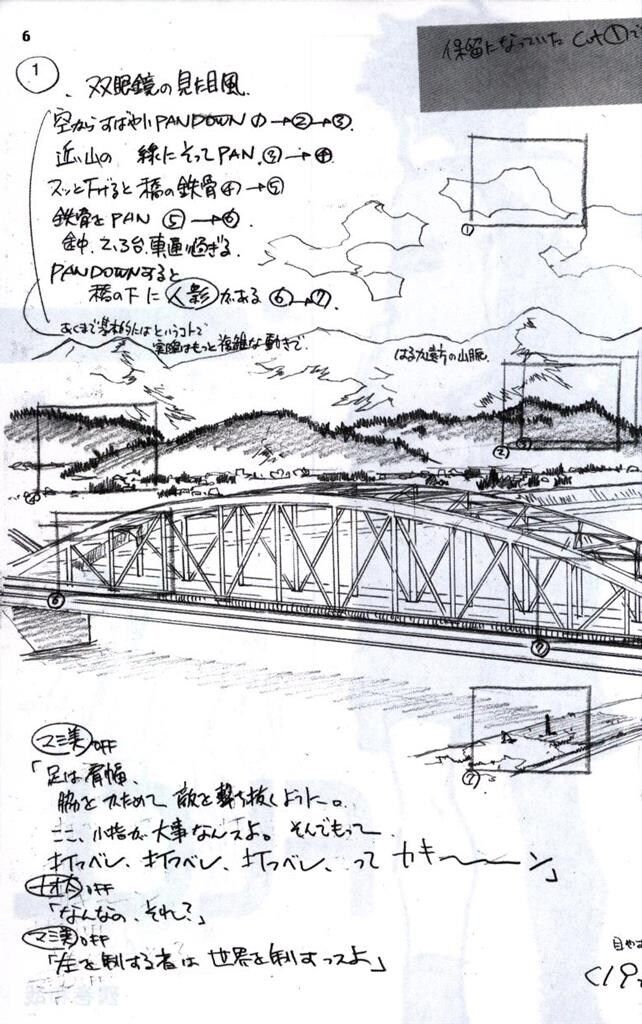 6
保留になっていた Cut①で
①
双眼鏡の見た目風.
空からすばやくPANDOWNの→②→③.
近い山の 線にそってPAN.③→④.
スッと下げると 橋の鉄骨④→⑤
鉄骨をPAN ⑤→⑥.
途中.2、3台.車通り過ぎる.
PANDOWNすると
橋の下に 人影がある ⑥→⑦.
あくまで基本的にはというコトで
実際はもっと複雑な動きで.
はるか遠方の山脈.
①
② ③
④
⑤
⑥
⑦
⑦
マミ美 OFF
「足は肩幅、
脇をかためて 敵を撃ち抜くように。
ここ、小指が大事なんスよ。 そんでもって
打つべし、打つべし、打つべし、って カキ〜〜ン」
ナオ太 OFF
「なんなの、それ?」
マミ美 OFF
「左を制する者は 世界を制すっスよ」